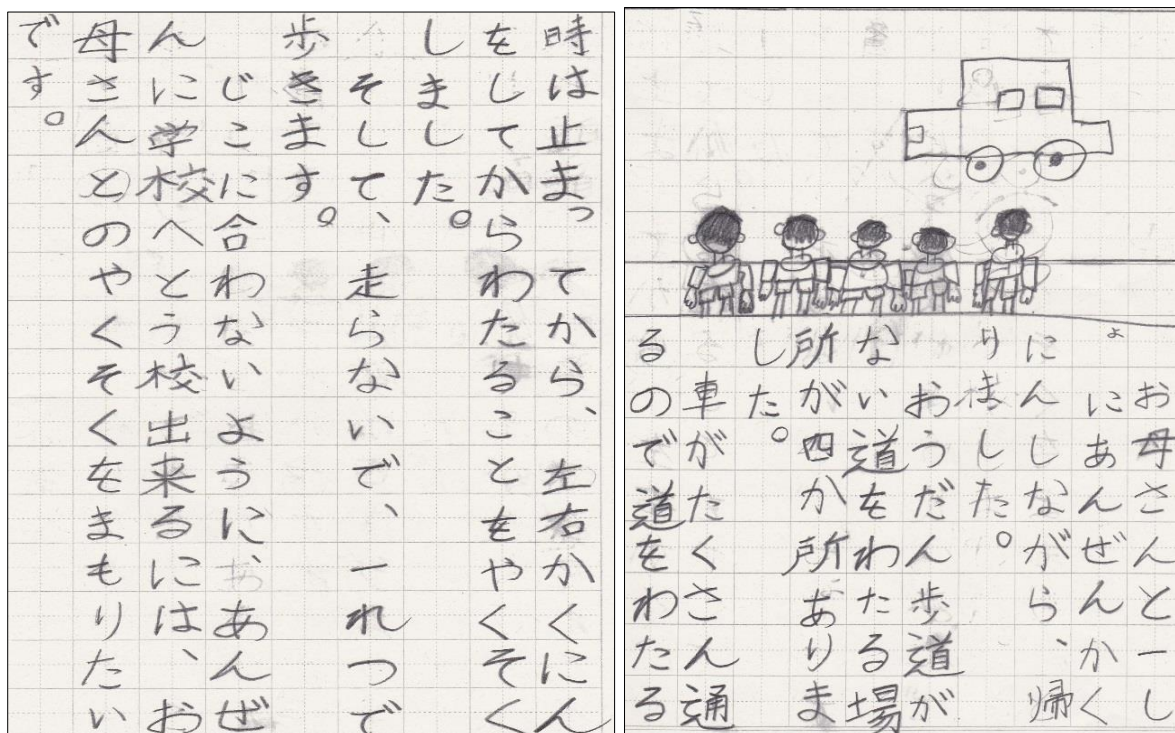 お母さんと一し
ょにあんぜんかく
にんしながら、帰
りました。
おうだん歩道が
ない道をわたる場
所が四か所ありま
した。
車がたくさん通
るので道をわたる
時は止まってから、左右かくにん
をしてからわたることをやくそく
しました。
そして、走らないで、一れつで
歩きます。
じこに合わないようにあんぜ
んに学校へとう校出来るには、お
母さんとのやくそくをまもりたい
です。